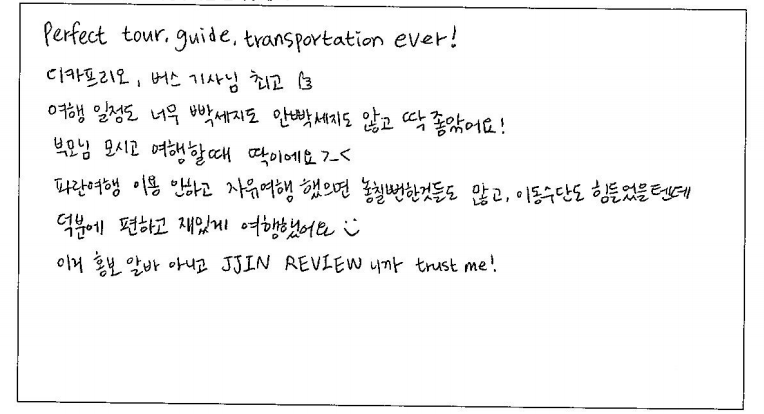 Perfect tour, guide, transportation ever!
디카프리오, 버스 기사님 최고
여행 일정도 너무 빡세지도 안빡세지도 않고 딱 좋았어요!
부모님 모시고 여행할때 딱이에요 >_<
파란여행 이용 안하고 자유여행 했으면 놓칠뻔한것들도 많고, 이동수단도 힘들었을텐데
덕분에 편하고 재밌게 여행했어요 :)
이거 홍보 알바 아니고 JJIN REVIEW 니까 trust me!